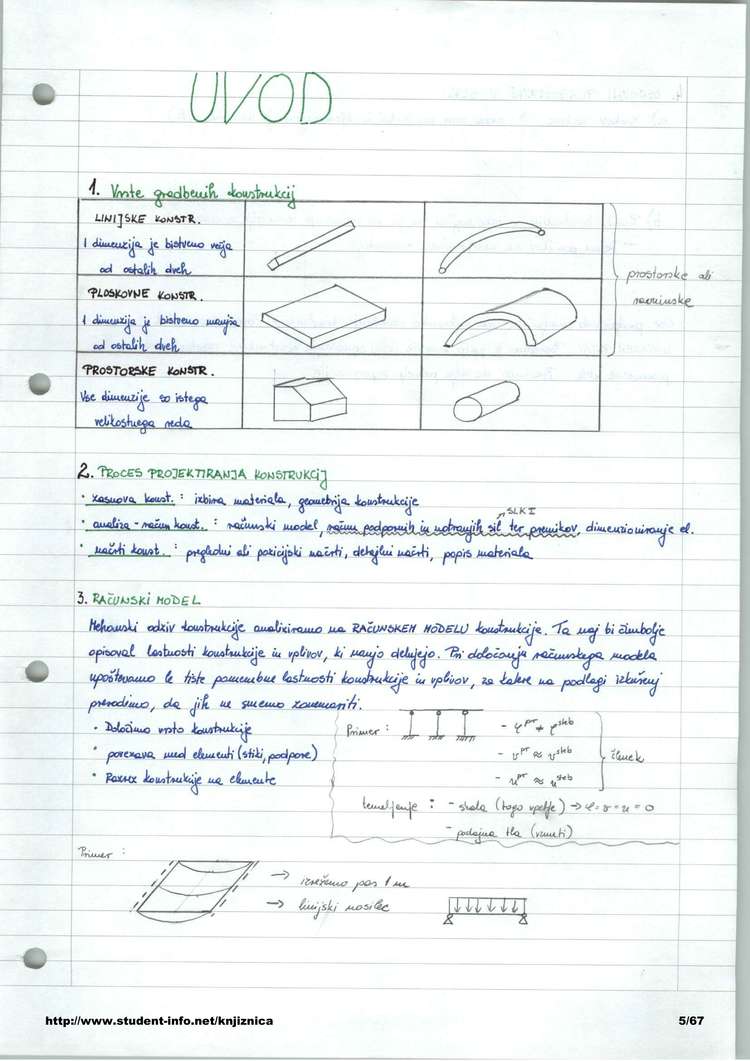 UVOD
1. Vrste gradbenih konstrukcij
LINIJSKE KONSTR.
1 dimenzija je bistveno večja
od ostalih dveh
PLOSKOVNE KONSTR.
1 dimenzija je bistveno manjša
od ostalih dveh
prostorske ali
ravninske
PROSTORSKE KONSTR.
Vse dimenzije so istega
velikostnega reda
2. PROCES PROJEKTIRANJA KONSTRUKCIJ
• zasnova konst. : izbira materiala, geometrija konstrukcije
SLKI
• analiza - račun konst. : računski model, račun podpornih in notranjih sil ter premikov, dimenzioniranje el.
• načrti konst. : pregledni ali pozicijski načrti, detajlni načrti, popis materiala
3. RAČUNSKI MODEL
Mehanski odziv konstrukcije analiziramo na RAČUNSKEM MODELU konstrukcije. Ta naj bi čimbolje
opisoval lastnosti konstrukcije in vplivov, ki nanjo delujejo. Pri določanju računskega modela
upoštevamo le tiste pomembne lastnosti konstrukcije in vplivov, za katere na podlagi izkušenj
presodimo, da jih ne smemo zanemariti.
• Določimo vrsto konstrukcije
• povezava med elementi (stiki, podpore)
• Razrez konstrukcije na elemente
Primer :
- φᵖʳ ≠ φˢᵗᵉᵇ
- vᵖʳ ≈ vˢᵗᵉᵇ
- uᵖʳ ≈ uˢᵗᵉᵇ
členek
temeljenje : - skala (togo vpetje) → φ = v = u = 0
- podajna tla (vzmeti)
Primer :
→ izrežemo pas 1 m
→ linijski nosilec
http://www.student-info.net/knjiznica
5/67